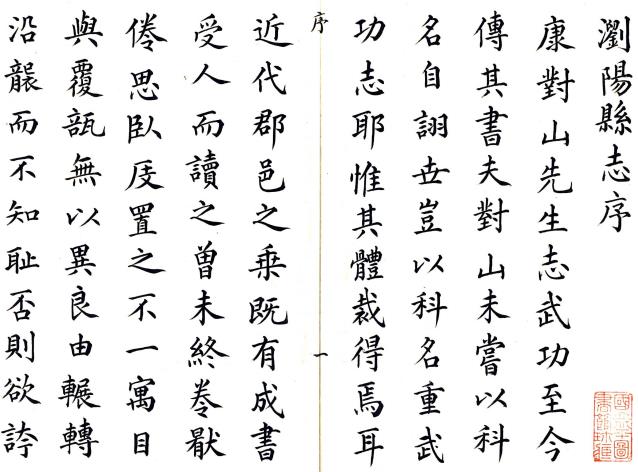 瀏陽縣志序
康對山先生志武功至今
傳其書夫對山未嘗以科
名自詡世豈以科名重武
功志耶惟其體裁得焉耳
序
一
近代郡邑之乘既有成書
受人而讀之曾未終卷厭
倦思臥庋置之不一寓目
與覆瓿無以異良由輾轉
沿襲而不知恥否則欲誇